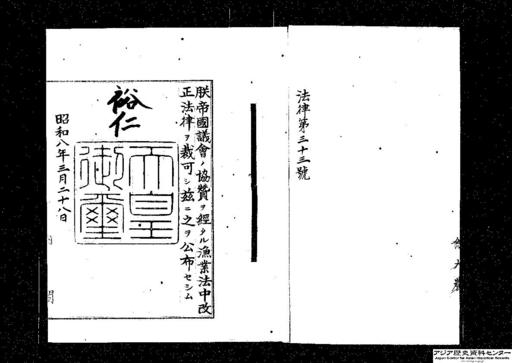 法律第三十三號
朕帝國議會ノ協贊ヲ經タル漁業法中改
正法律ヲ裁可シ茲ニ之ヲ公布セシム
裕仁
天皇御璽
昭和八年三月二十八日
アジア歴史資料センター
Japan Center for Asian Historical Records